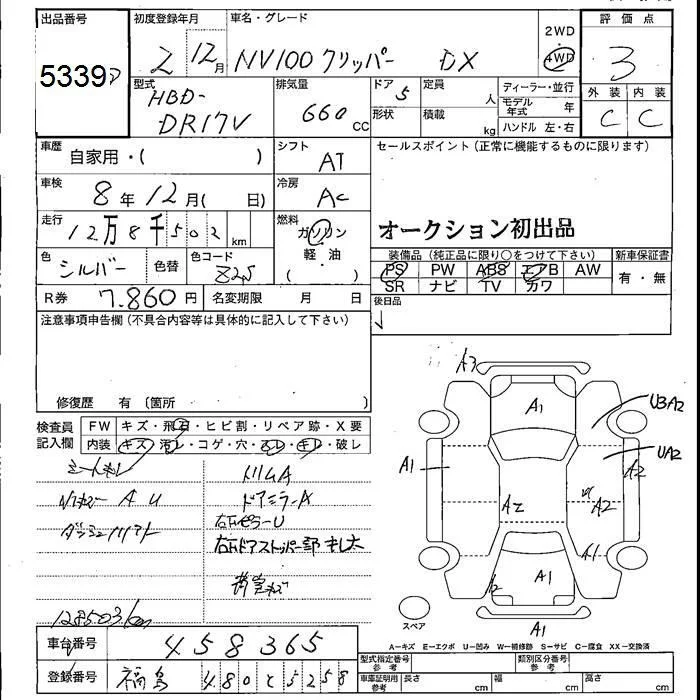 出品番号 初度登録年月 車名・グレード 2WD 評価点
5339 2 12月 NV100 クリッパー DX 4WD 3
型式 排気量 ドア 定員 ディーラー・並行 外装 内装
HBD- 660 CC 5 人 モデル年式 年 C C
DR17V 形状 積載 kg ハンドル 左・右
車歴 自家用・( ) シフト AT セールスポイント(正常に機能するものに限ります)
車検 8年12月( 日) 冷房 AC
走行 12万8千502 km 燃料 ガソリン オークション初出品
軽油
( )
色 シルバー 色替 色コード Z25 装備品(純正品に限り○をつけて下さい) 新車保証書
PS PW ABS エアB AW 有・無
SR ナビ TV カワ
R券 7,860円 名変期限 月 日 後日品
注意事項申告欄(不具合内容等は具体的に記入して下さい)
修復歴 有 〔箇所 〕
検査員記入欄 FW キズ・飛石・ヒビ割・リペア跡・X要
内装 キズ・汚レ・コゲ・穴・スレ・キレ・破レ
トリムA
A U ドアミラーA
右Bピラー U
右Bドアストッパー部 キレ大
128503km
A3 A1 UBA2 UA2 A1 A2 A2 A2 A1 A1 A1
スペア
A=キズ E=エクボ U=凹み W=補修跡 S=サビ C=腐食 XX=交換済
車台番号 458365
登録番号 福島 480 と 5258
型式指定番号 参考 類別区分番号 参考
車庫証明用 参考 長さ cm 幅 cm 高さ cm